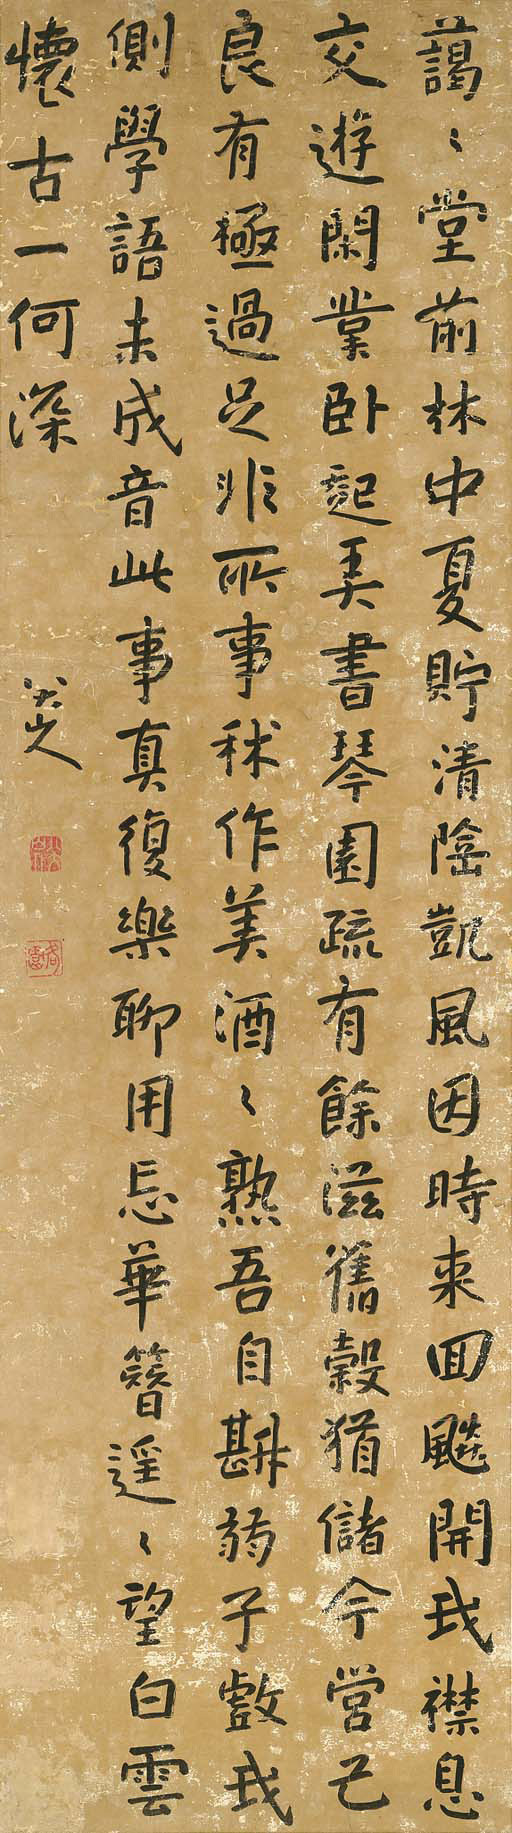 藹〻堂前林中夏貯清陰凱風因時來回飈開我襟息
交遊閑業臥起弄書琴園疏有餘滋舊穀猶儲今營己
良有極過足非所事秫作美酒〻熟吾自斟弱子戲我
側學語未成音此事真復樂聊用忘華簪遥〻望白雲
懷古一何深
八大山人